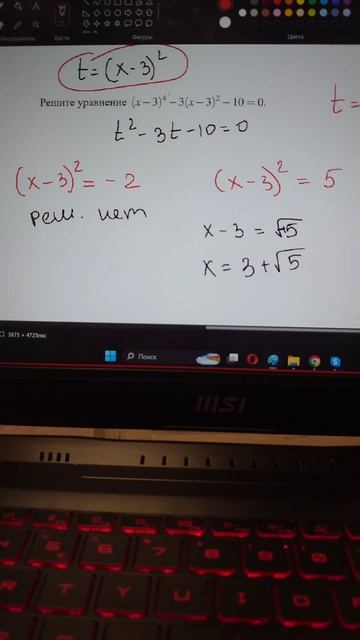 Инструменты
Кисти
Фигуры
Цвета
t = (x - 3)²
Решите уравнение (x − 3)⁴ − 3(x − 3)² − 10 = 0.
t =
t² - 3t - 10 = 0
(x - 3)² = - 2
(x - 3)² = 5
реш. нет
x - 3 = √5
x = 3 + √5
3875 × 4725пкс
Поиск
msi
5 6 7 8 9 0
R T Y U I O